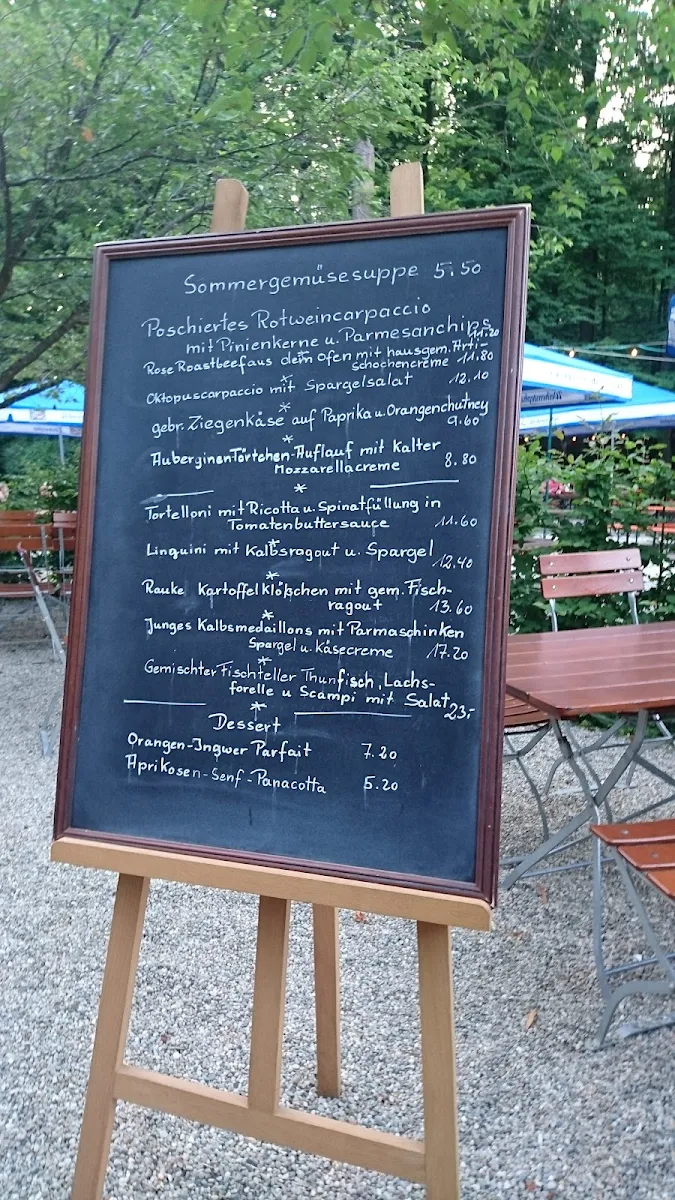 Sommergemüsesuppe 5.50
Poschiertes Rotweincarpaccio
mit Pinienkerne u. Parmesanchips
11.20
Rose Roastbeef aus dem Ofen mit hausgem. Arti-
schochencreme 11.80
*
Oktopuscarpaccio mit Spargelsalat 12.10
*
gebr. Ziegenkäse auf Paprika u. Orangenchutney
9.60
*
AuberginenTörtchen-Auflauf mit Kalter
Mozzarellacreme 8.80
*
Tortelloni mit Ricotta u. Spinatfüllung in
Tomatenbuttersauce 11.60
*
Linguini mit Kalbsragout u. Spargel
12.40
*
Rauke Kartoffelklößchen mit gem. Fisch-
ragout 13.60
*
Junges Kalbsmedaillons mit Parmaschinken
Spargel u. Käsecreme 17.20
*
Gemischter Fischteller Thunfisch, Lachs-
forelle u Scampi mit Salat
23,-
*
Dessert
Orangen-Ingwer Parfait 7.20
Aprikosen-Senf-Panacotta 5.20